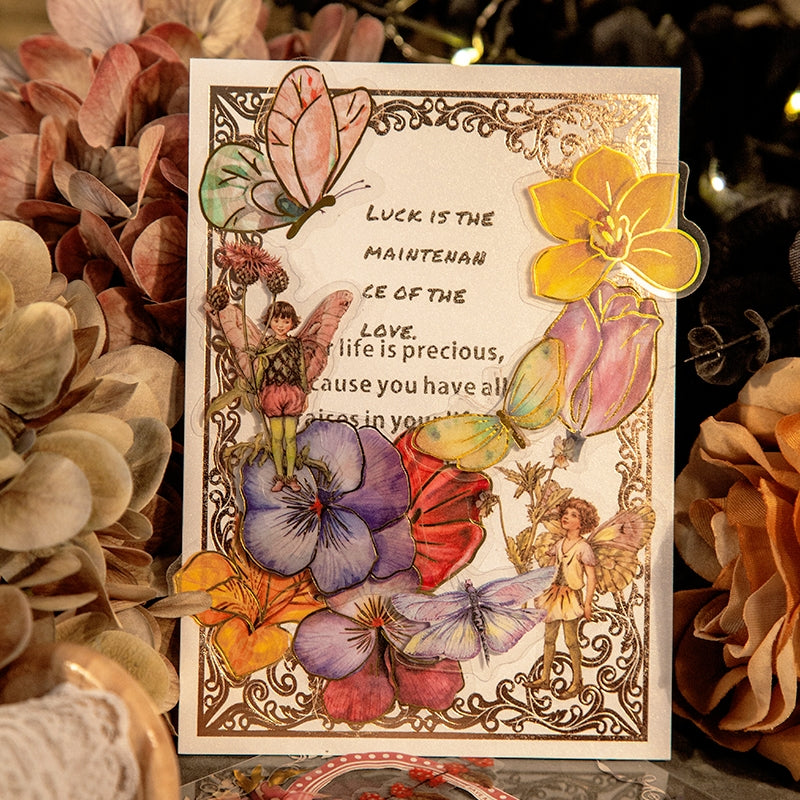 LUCK IS THE
MAINTENAN
CE OF THE
LOVE.
life is precious,
cause you have all
in your